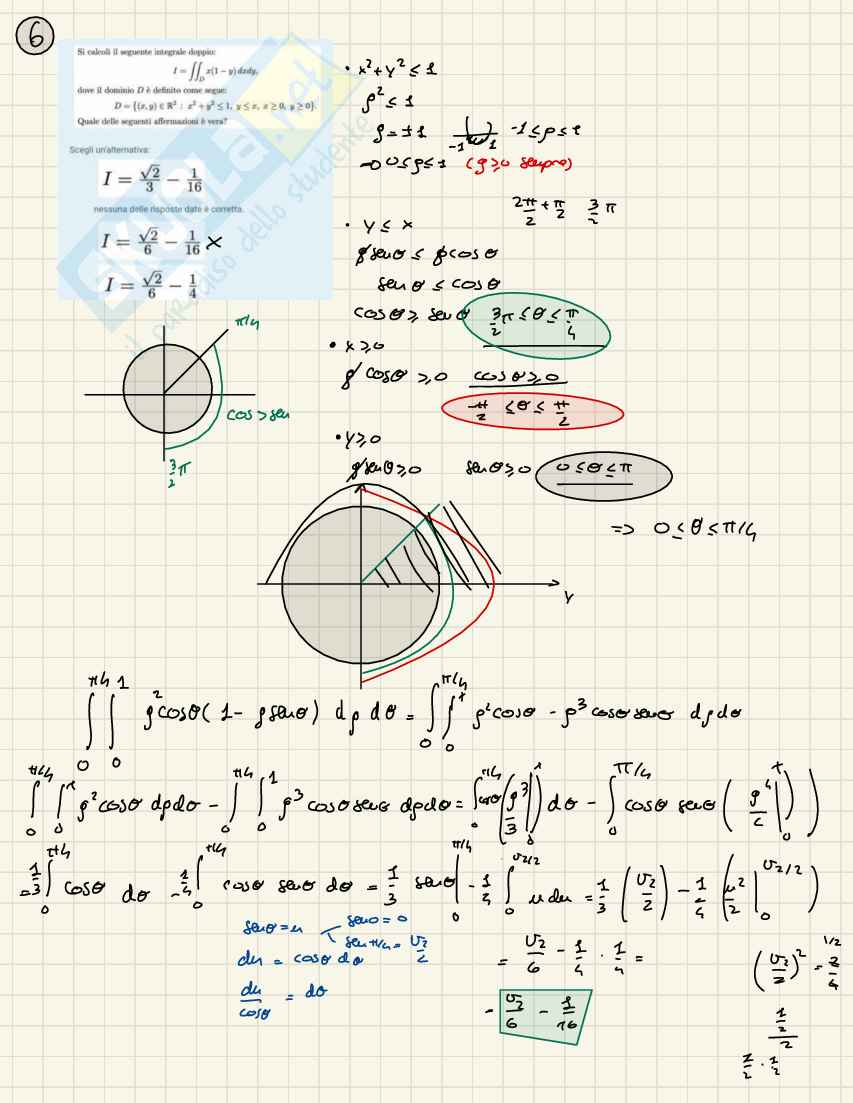 6
Si calcoli il seguente integrale doppio:
I = ∬_D x(1 − y) dxdy,
dove il dominio D è definito come segue:
D = {(x, y) ∈ ℝ² : x² + y² ≤ 1, y ≤ x, x ≥ 0, y ≥ 0}.
Quale delle seguenti affermazioni è vera?
Scegli un'alternativa:
I = √2/3 − 1/16
nessuna delle risposte date è corretta.
I = √2/6 − 1/16 X
I = √2/6 − 1/4
skuola.net
il paradiso dello studente
• x² + y² ≤ 1
ρ² ≤ 1
ρ = ±1 -1 1 -1 ≤ ρ ≤ 1
→ 0 ≤ ρ ≤ 1 (ρ ≥ 0 sempre)
2π/2 + π/2 3/2 π
• y ≤ x
ρ senθ ≤ ρ cosθ
senθ ≤ cosθ
cosθ ≥ senθ 3/2 π ≤ θ ≤ π/4
• x ≥ 0
ρ cosθ ≥ 0 cosθ ≥ 0
-π/2 ≤ θ ≤ π/2
• y ≥ 0
ρ senθ ≥ 0 senθ ≥ 0 0 ≤ θ ≤ π
=> 0 ≤ θ ≤ π/4
π/4
cos > sen
3/2 π
Y
∫_0^{π/4} ∫_0^1 ρ² cosθ (1 - ρ senθ) dρ dθ = ∫_0^{π/4} ∫_0^1 ρ² cosθ - ρ³ cosθ senθ dρ dθ
∫_0^{π/4} ∫_0^1 ρ² cosθ dρ dθ - ∫_0^{π/4} ∫_0^1 ρ³ cosθ senθ dρ dθ = ∫_0^{π/4} cosθ (ρ³/3 |_0^1) dθ - ∫_0^{π/4} cosθ senθ (ρ⁴/4 |_0^1)
= 1/3 ∫_0^{π/4} cosθ dθ - 1/4 ∫_0^{π/4} cosθ senθ dθ = 1/3 senθ |_0^{π/4} - 1/4 ∫_0^{√2/2} u du = 1/3 (√2/2) - 1/4 (u²/2 |_0^{√2/2})
senθ = u sen0 = 0
sen π/4 = √2/2
du = cosθ dθ
du/cosθ = dθ
= √2/6 - 1/4 · 1/4 =
= √2/6 - 1/16
(√2/2)² = 2/4 1/2
1/2 / 2
1/2 · 1/2